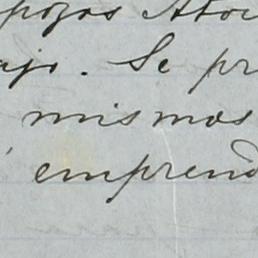 pozos Ato
ajo. Se pr
mismos
emprend